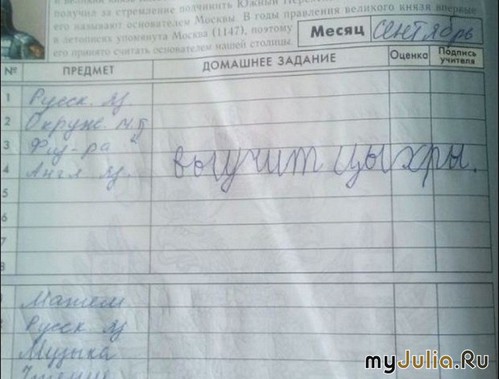 получил за стремление подчинить Южный
его называют основателем Москвы. В годы правления великого князя впервые
в летописях упомянута Москва (1147), поэтому
его принято считать основателем нашей столицы
Месяц Сентябрь
№ ПРЕДМЕТ ДОМАШНЕЕ ЗАДАНИЕ Оценка Подпись учителя
1 Русск. яз.
2 Окруж. м.
3 Физ-ра
4 Англ. яз. выучит цыхры.
5
6
7
8
Матем
Русск яз
Музыка
Чтение
myJulia.Ru